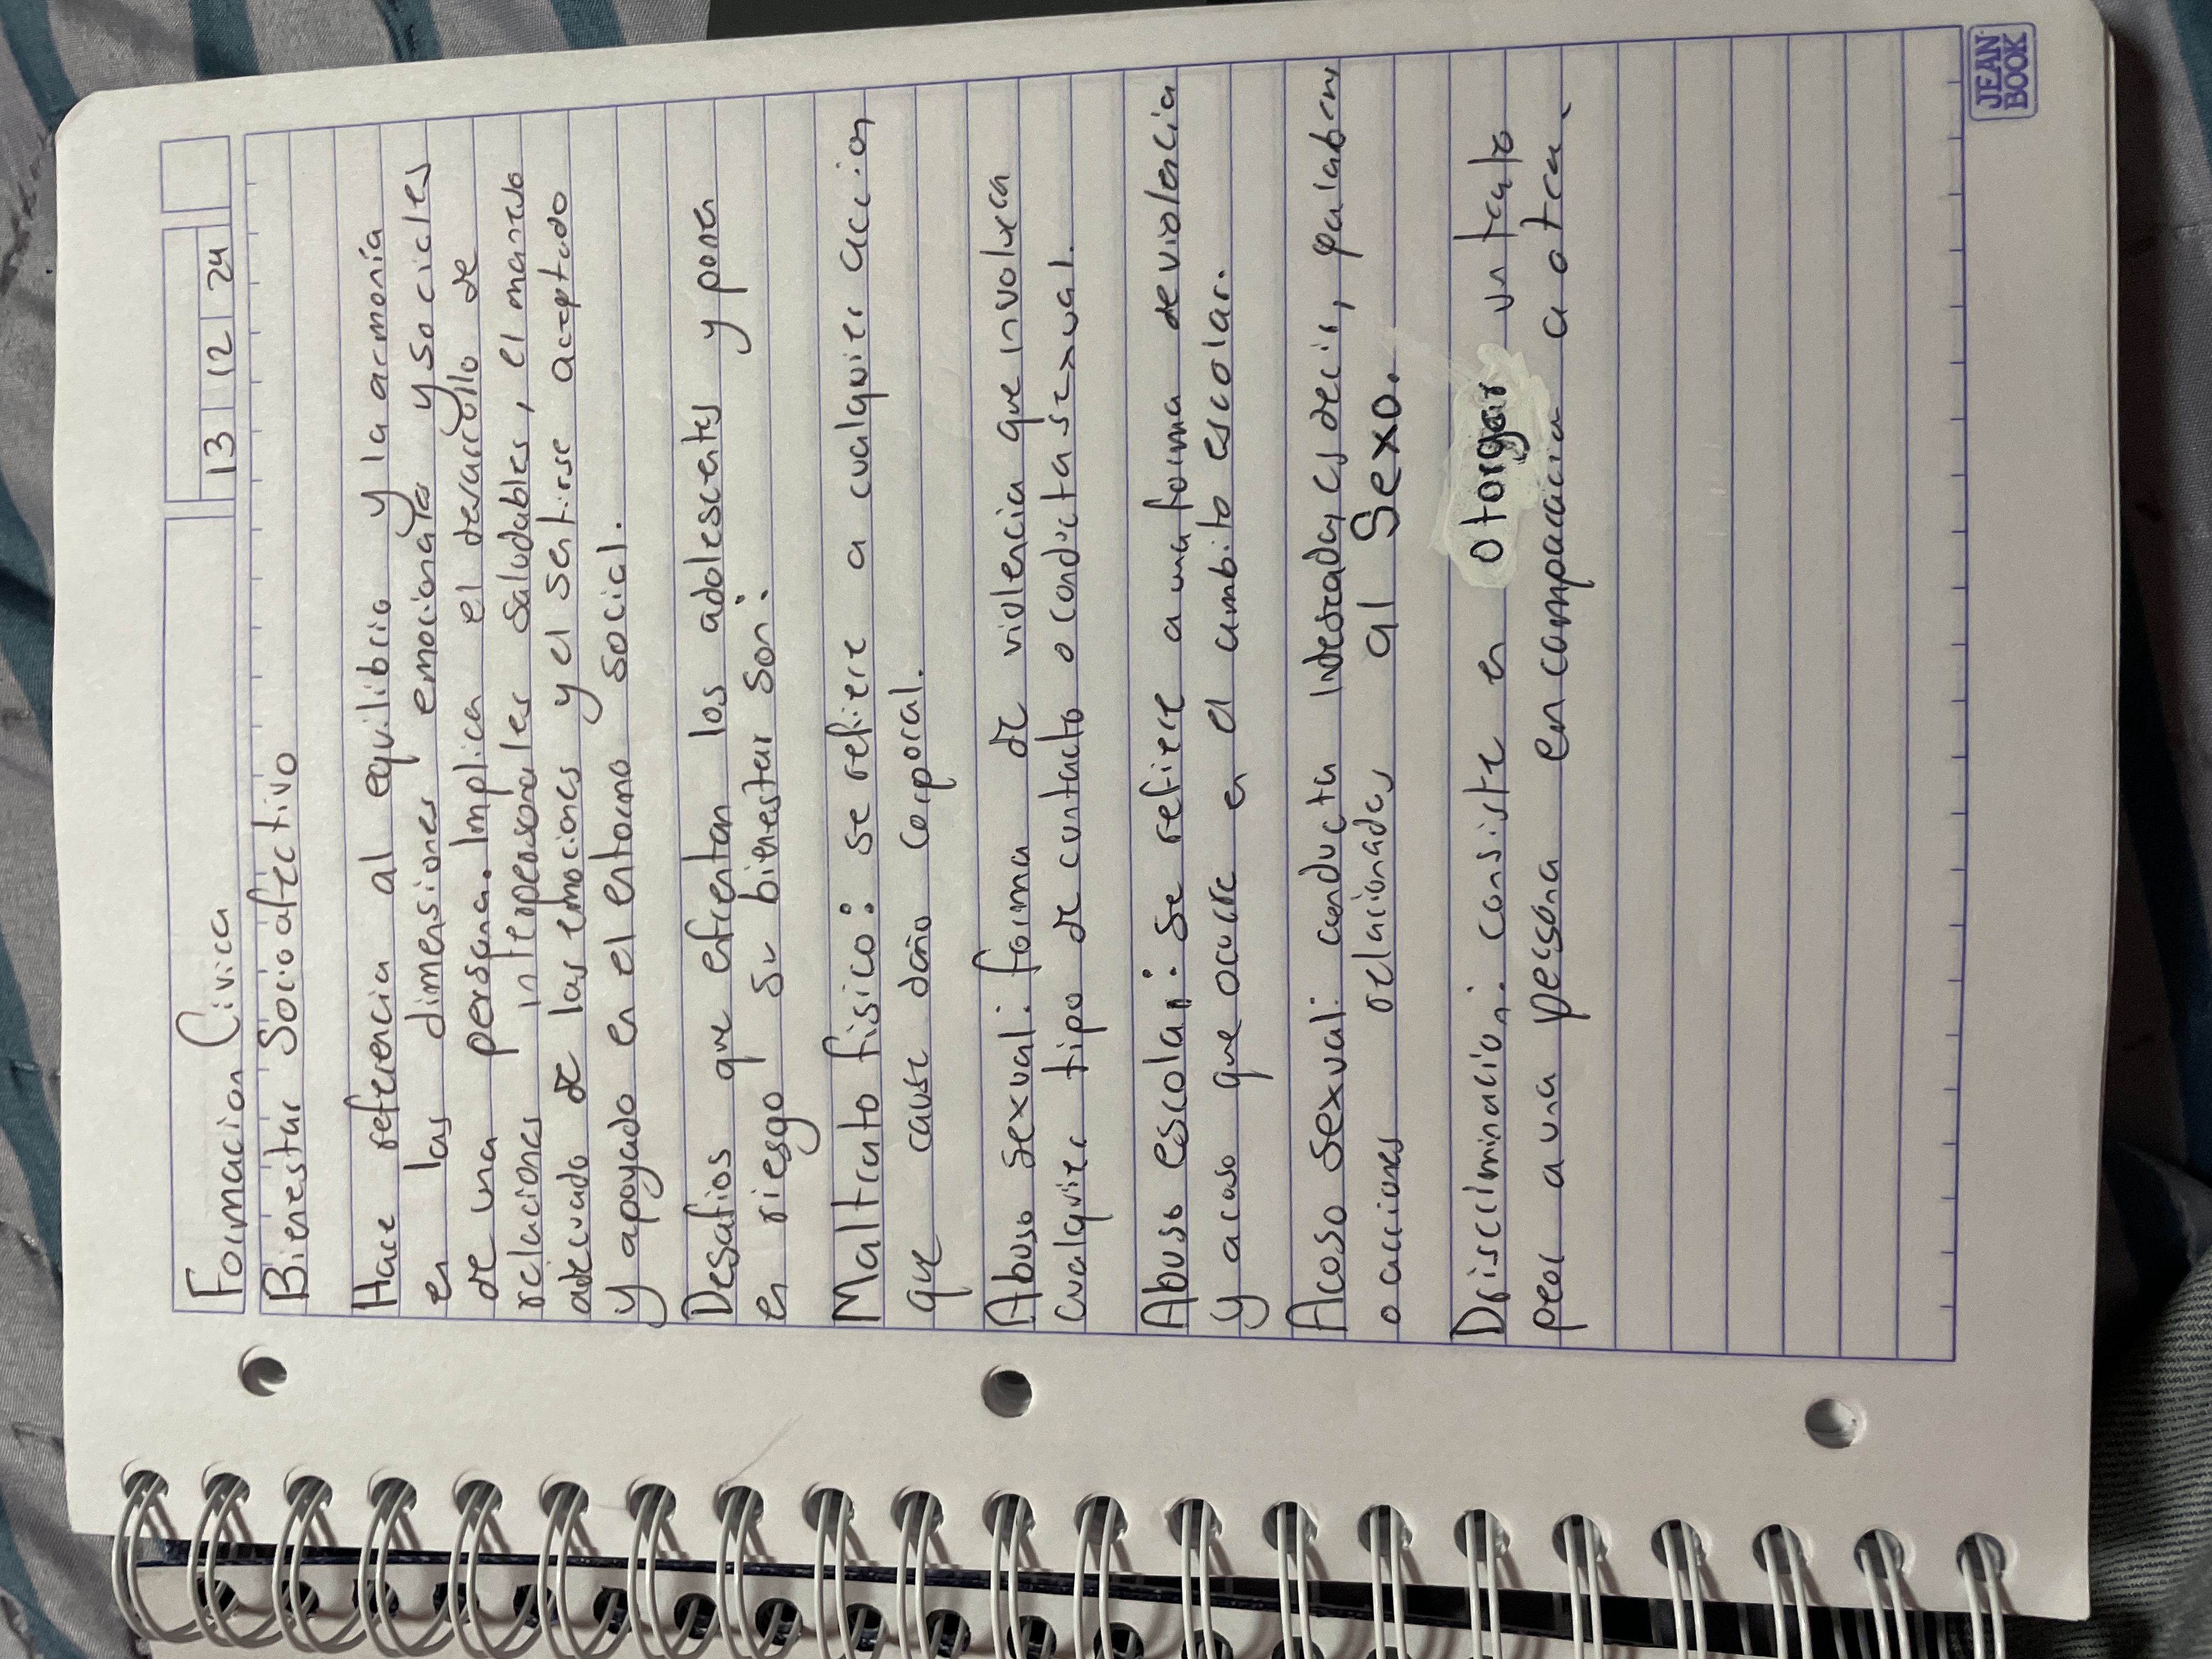 Formacion Civica
13 12 24
Bienestar Socioafectivo
Hace referencia al equilibrio y la armonía
en las dimensiones emocionales y sociales
de una persona. Implica en el desarrollo de
relaciones interpersonales saludables, el manejo
adecuado de las emociones y el sentirse aceptado
y apoyado en el entorno social.
Desafios que enfrentan los adolescentes y ponen
en riesgo su bienestar son:
Maltrato fisico: se refiere a cualquier accion
que cause daño corporal.
Abuso sexual: forma de violencia que involucra
cualquier tipo de contacto o conducta sexual.
Abuso escolar: se refiere a una forma de violencia
y acoso que ocurre en el ambito escolar.
Acoso sexual: conducta indeseada, es decir, palabras
o acciones relacionadas al Sexo.
Discriminacion: consiste en otorgar un trato
peor a una persona en comparacion a otra.
JEAN
BOOK